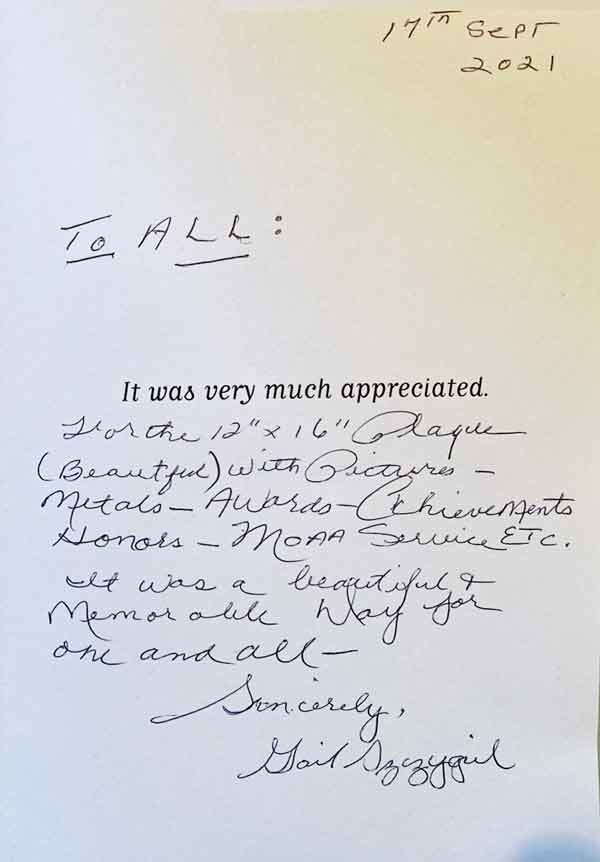 17th Sept
2021
To ALL:
It was very much appreciated.
For the 12" x 16" Plaque
(Beautiful) with Pictures -
Metals - Awards - Achievements
Honors - MOAA Service ETC.
It was a beautiful &
Memorable Way for
one and all -
Sincerely,
Gail Szczygiel